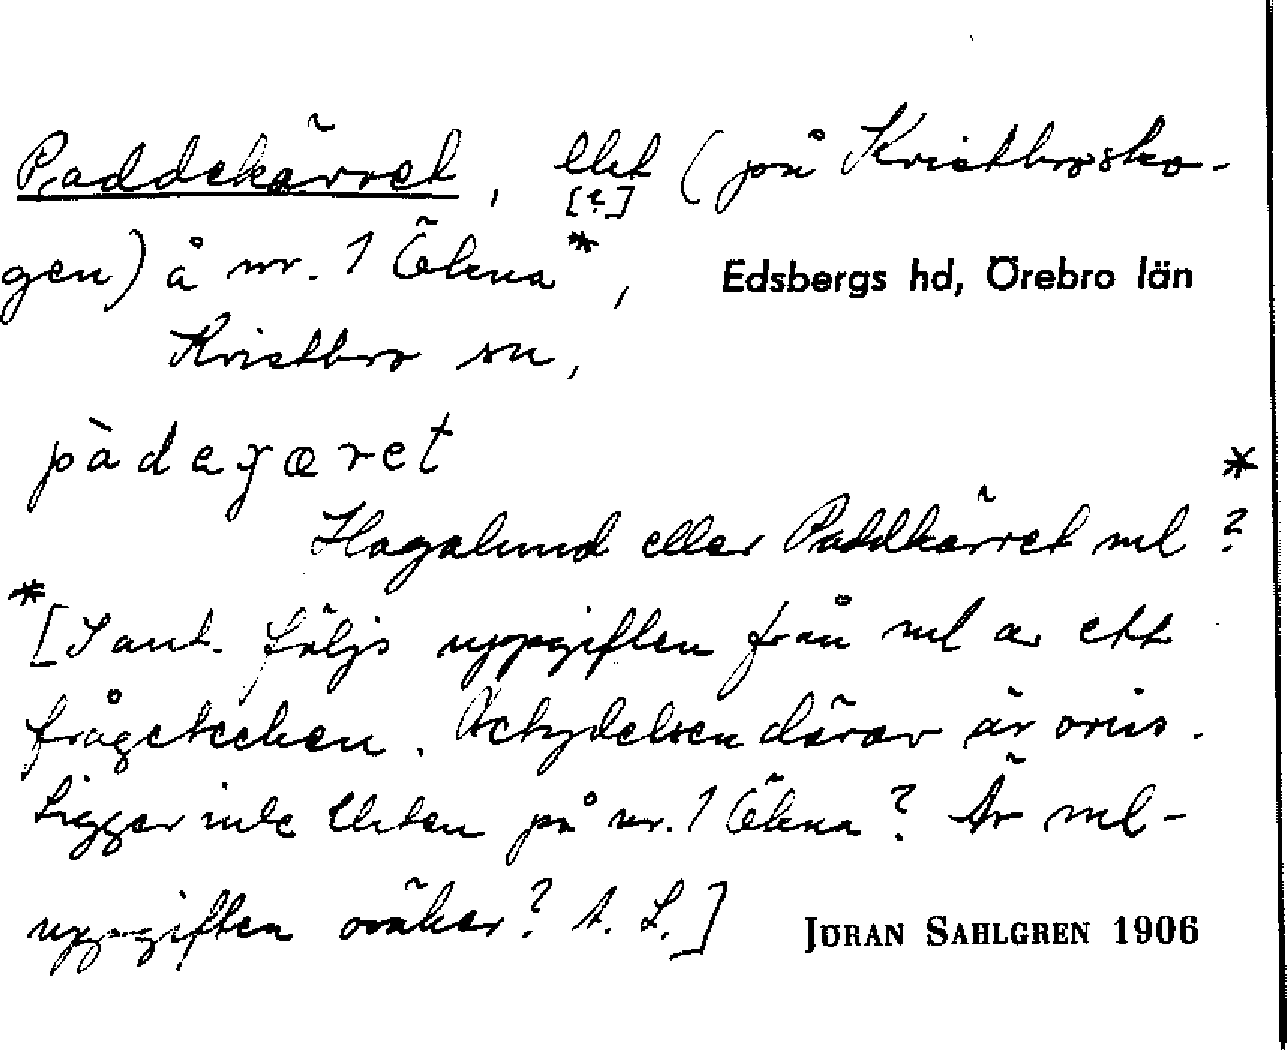 Paddekärret, lht (på Kristbrosko-
[?]
gen) å nr. 1 Ökna*, Edsbergs hd, Örebro län
Kristbro sn,
pàdeɟæret
*
Hagalund eller Paddkärret ml ?
*
[I ant. följs uppgiften från ml av ett
frågetecken. Betydelsen därav är oviss.
Ligger inte lhten på nr. 1 Ökna? Är ml-
uppgiften osäker? A. L.] JÖRAN SAHLGREN 1906